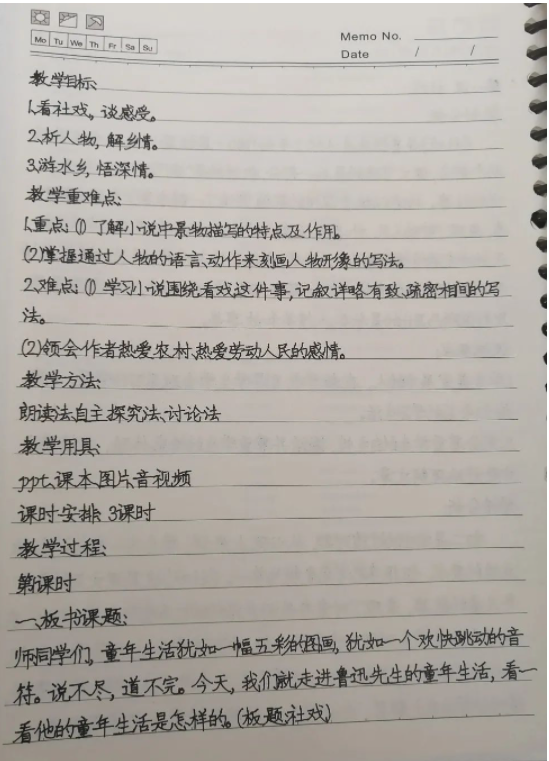 Memo No.
Mo Tu We Th Fr Sa Su
Date / /
教学目标:
1.看社戏,谈感受。
2.析人物,解乡情。
3.游水乡,悟深情。
教学重难点:
1.重点:(1)了解小说中景物描写的特点及作用。
(2)掌握通过人物的语言、动作来刻画人物形象的写法。
2.难点:(1)学习小说围绕看戏这件事,记叙详略有致、疏密相间的写
法。
(2)领会作者热爱农村、热爱劳动人民的感情。
教学方法:
朗读法、自主探究法、讨论法
教学用具:
ppt、课本、图片、音视频
课时安排:3课时
教学过程:
第课时
一、板书课题:
师:同学们,童年生活犹如一幅五彩的图画,犹如一个欢快跳动的音
符。说不尽,道不完。今天,我们就走进鲁迅先生的童年生活,看一
看他的童年生活是怎样的。(板题:社戏)